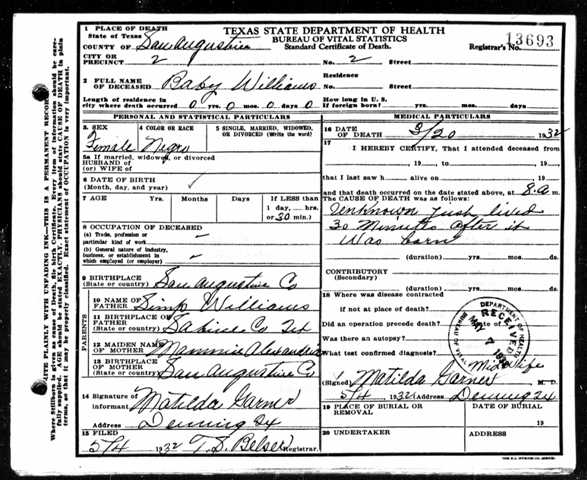 1 PLACE OF DEATH
State of Texas
TEXAS STATE DEPARTMENT OF HEALTH
BUREAU OF VITAL STATISTICS
Standard Certificate of Death.
13693
Registrar's No.
COUNTY OF San Augustine
CITY OR
PRECINCT 2 No. 2 Street
2 FULL NAME
OF DECEASED Baby Williams
Residence
No. Street
Length of residence in
city where death occurred 0 yrs. 0 mos. 0 days 0
How long in U. S.
if foreign born? yrs. mos. days
PERSONAL AND STATISTICAL PARTICULARS
3. SEX
Female
4 COLOR OR RACE
Negro
5 SINGLE, MARRIED, WIDOWED,
OR DIVORCED (Write the word)
5a If married, widowed, or divorced
HUSBAND OF
(or) WIFE OF
6 DATE OF BIRTH
(Month, day, and year)
7 AGE Yrs. Months Days
If LESS than
1 day, hrs.
or 30 min.)
8 OCCUPATION OF DECEASED
(a) Trade, profession or
particular kind of work
(b) General nature of industry,
business, or establishment in
which employed (or employer)
9 BIRTHPLACE
(State or country) San Augustine Co
PARENTS
10 NAME OF
FATHER Simp Williams
11 BIRTHPLACE OF
FATHER
(State or country) Sabine Co
12 MAIDEN NAME
OF MOTHER Mammie
13 BIRTHPLACE
OF MOTHER
(State or country) San Augustine Co
14 Signature of
informant Matilda Garner
Address Denning
15 FILED
5/4 1932 T. S. Belser Registrar.
MEDICAL PARTICULARS
16 DATE
OF DEATH 3/20 1932
17
I HEREBY CERTIFY, That I attended deceased
from
, 19 , to , 19
that I last saw h alive on , 19
and that death occurred on the date stated above, at 8.a m.
The CAUSE OF DEATH was as follows:
Unknown just lived
30 Minutes after it
Was born
(duration) yrs. mos. ds.
CONTRIBUTORY
(Secondary)
(duration) yrs. mos. ds.
18 Where was disease contracted
if not at place of death?
Did an operation precede death? Date of
Was there an autopsy?
What test confirmed diagnosis?
DEPARTMENT OF HEALTH
RECEIVED
MAY 7
BUREAU OF VITAL STATISTICS
Midwife
(Signed) Matilda Garner M. D.
5/4 1932 Address Denning
19 PLACE OF BURIAL OR
REMOVAL
DATE OF BURIAL
19
20 UNDERTAKER
ADDRESS